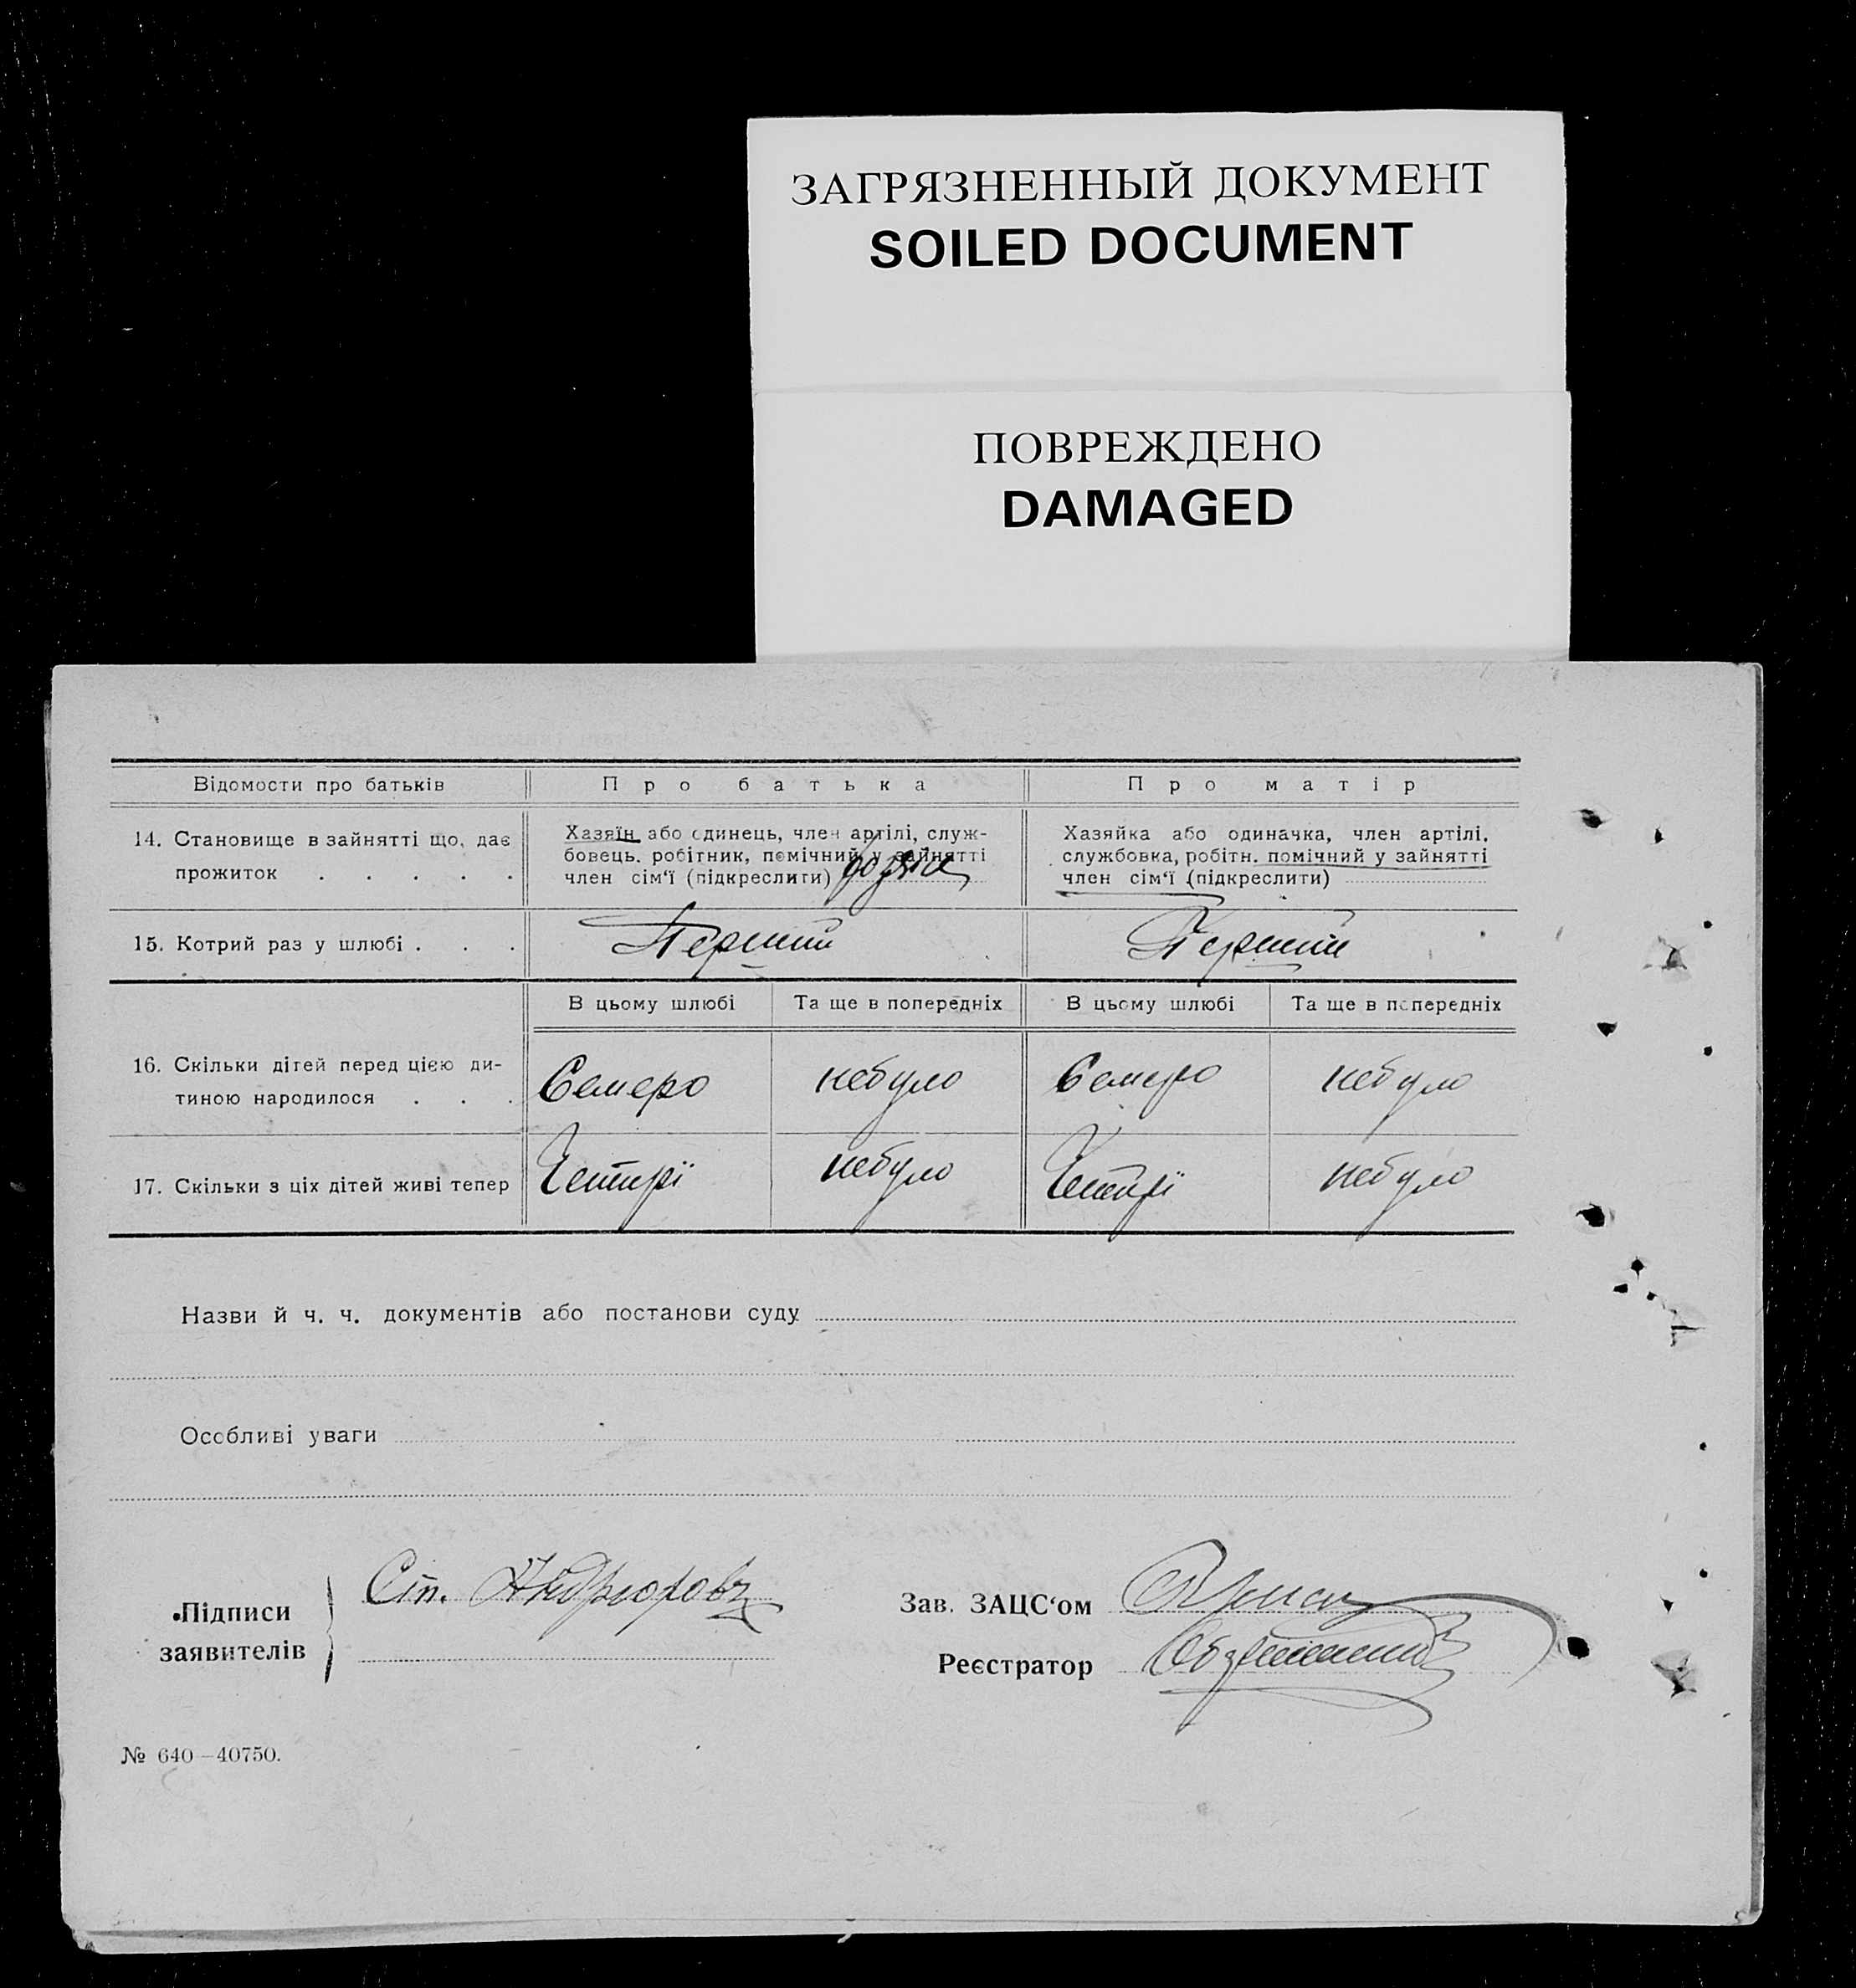 ЗАГРЯЗНЕННЫЙ ДОКУМЕНТ
SOILED DOCUMENT
ПОВРЕЖДЕНО
DAMAGED
Відомости про батьків Про батька Про матір
14. Становище в зайнятті що, дає
прожиток . . . . .
Хазяїн або єдинець, член артілі, служ-
бовець. робітник, помічний у зайнятті
член сім‘ї (підкреслити)
Хазяйка або одиначка, член артілі,
службовка, робітн. помічний у зайнятті
член сім‘ї (підкреслити)
15. Котрий раз у шлюбі . . . Перший Перший
В цьому шлюбі Та ще в попередніх В цьому шлюбі Та ще в попередніх
16. Скільки дітей перед цією ди-
тиною народилося . . .
Семеро небуло Семеро небуло
17. Скільки з ціх дітей живі тепер Четирї небуло Четирї небуло
Назви й ч. ч. документів або постанови суду
Особливі уваги
Підписи
заявителів
Ст.
Зав. ЗАЦС‘ом
Реєстратор
№ 640–40750.